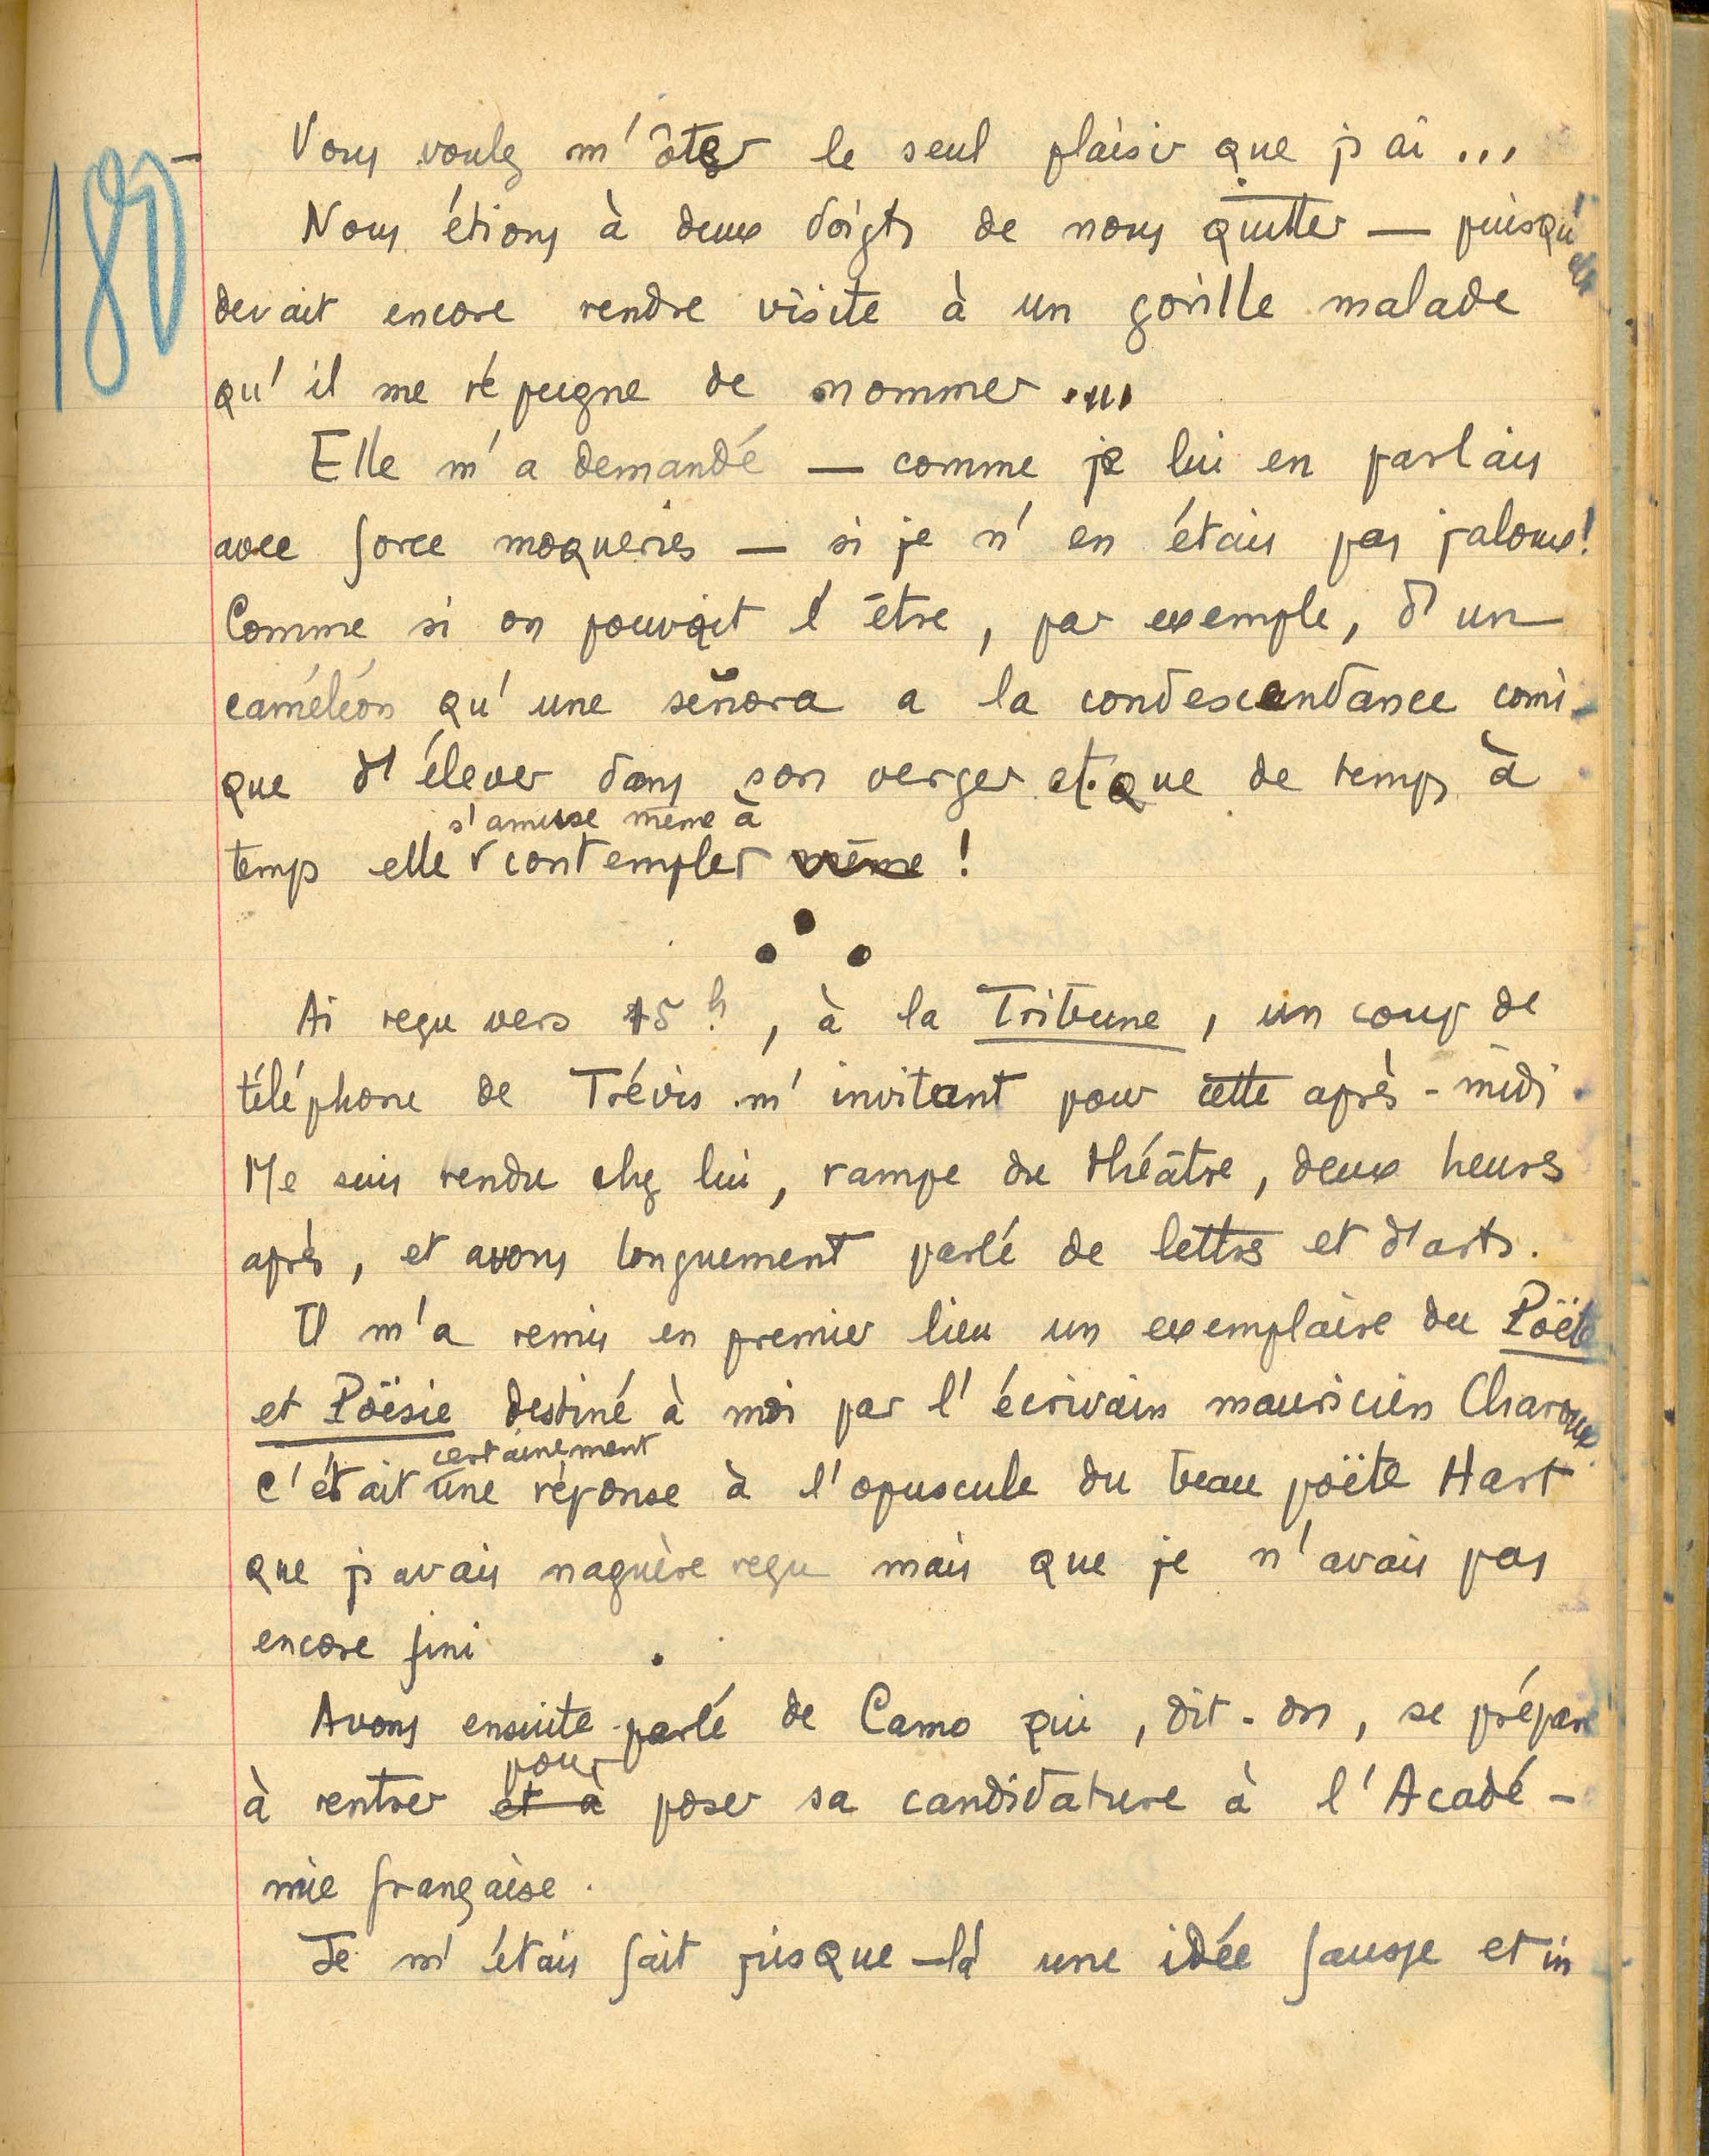 180
— Vous voulez m'ôter le seul plaisir que j'ai ...
Nous étions à deux doigts de nous quitter — puisqu'elle
devait encore rendre visite à un gorille malade
qu'il me répugne de nommer ....
Elle m'a demandé — comme je lui en parlais
avec force moqueries — si je n'en étais pas jaloux!
Comme si on pouvait l'être, par exemple, d'un
caméléon qu'une señora a la condescendance comi-
que d'élever dans son verger et que de temps à
s'amuse même à
temps elle contempler même !
Ai reçu vers 15 h, à la Tribune, un coup de
téléphone de Trévis m'invitant pour cette après-midi.
Me suis rendu chez lui, rampe du théâtre, deux heures
après, et avons longuement parlé de lettres et d'arts.
Il m'a remis en premier lieu un exemplaire du Poëte
et Poësie destiné à moi par l'écrivain mauricien Charoux.
certainement
C'était une réponse à l'opuscule du beau poëte Hart
que j'avais naguère reçu mais que je n'avais pas
encore fini .
Avons ensuite parlé de Camo qui, dit-on, se prépare
pour
à rentrer et à poser sa candidature à l'Acadé-
mie française.
Je m'étais fait jusque-là une idée fausse et in